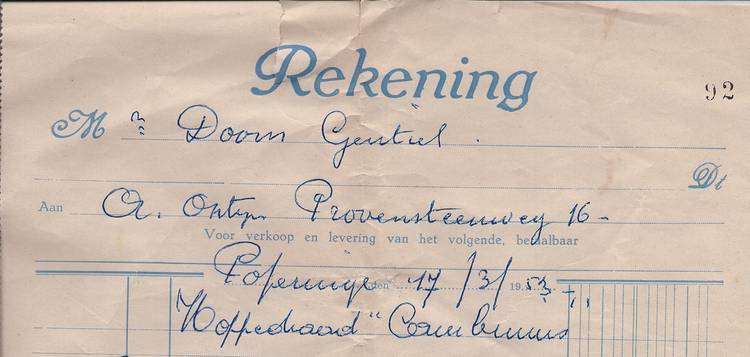 Rekening
92
Mr Doom Gentiel.
Dt
Aan A. Provensteenweg 16 -
Voor verkoop en levering van het volgende, betaalbaar
Poperinge den 17/3/1953